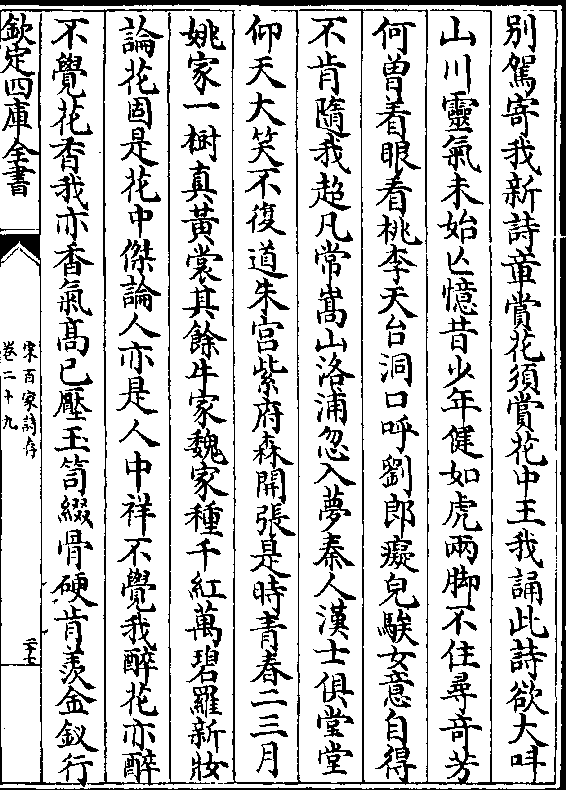 別駕寄我新詩章賞花須賞花中王我誦此詩欲大呌
山川靈氣未始亡憶昔少年健如虎兩脚不住尋竒芳
何曽着眼看桃李天台洞口呼劉郎癡兒騃女意自得
不肯隨我超凡常嵩山洛浦忽入夢秦人漢士俱堂堂
仰天大笑不復道朱宫紫府森開張是時青春二三月
姚家一樹真黃裳其餘牛家魏家種千紅萬碧羅新妝
論花固是花中傑論人亦是人中祥不覺我醉花亦醉
不覺花香我亦香氣髙已壓玉笥綴骨硬肯羨金釵行
欽定四庫全書
宋百家詩存
卷二十九
二十七